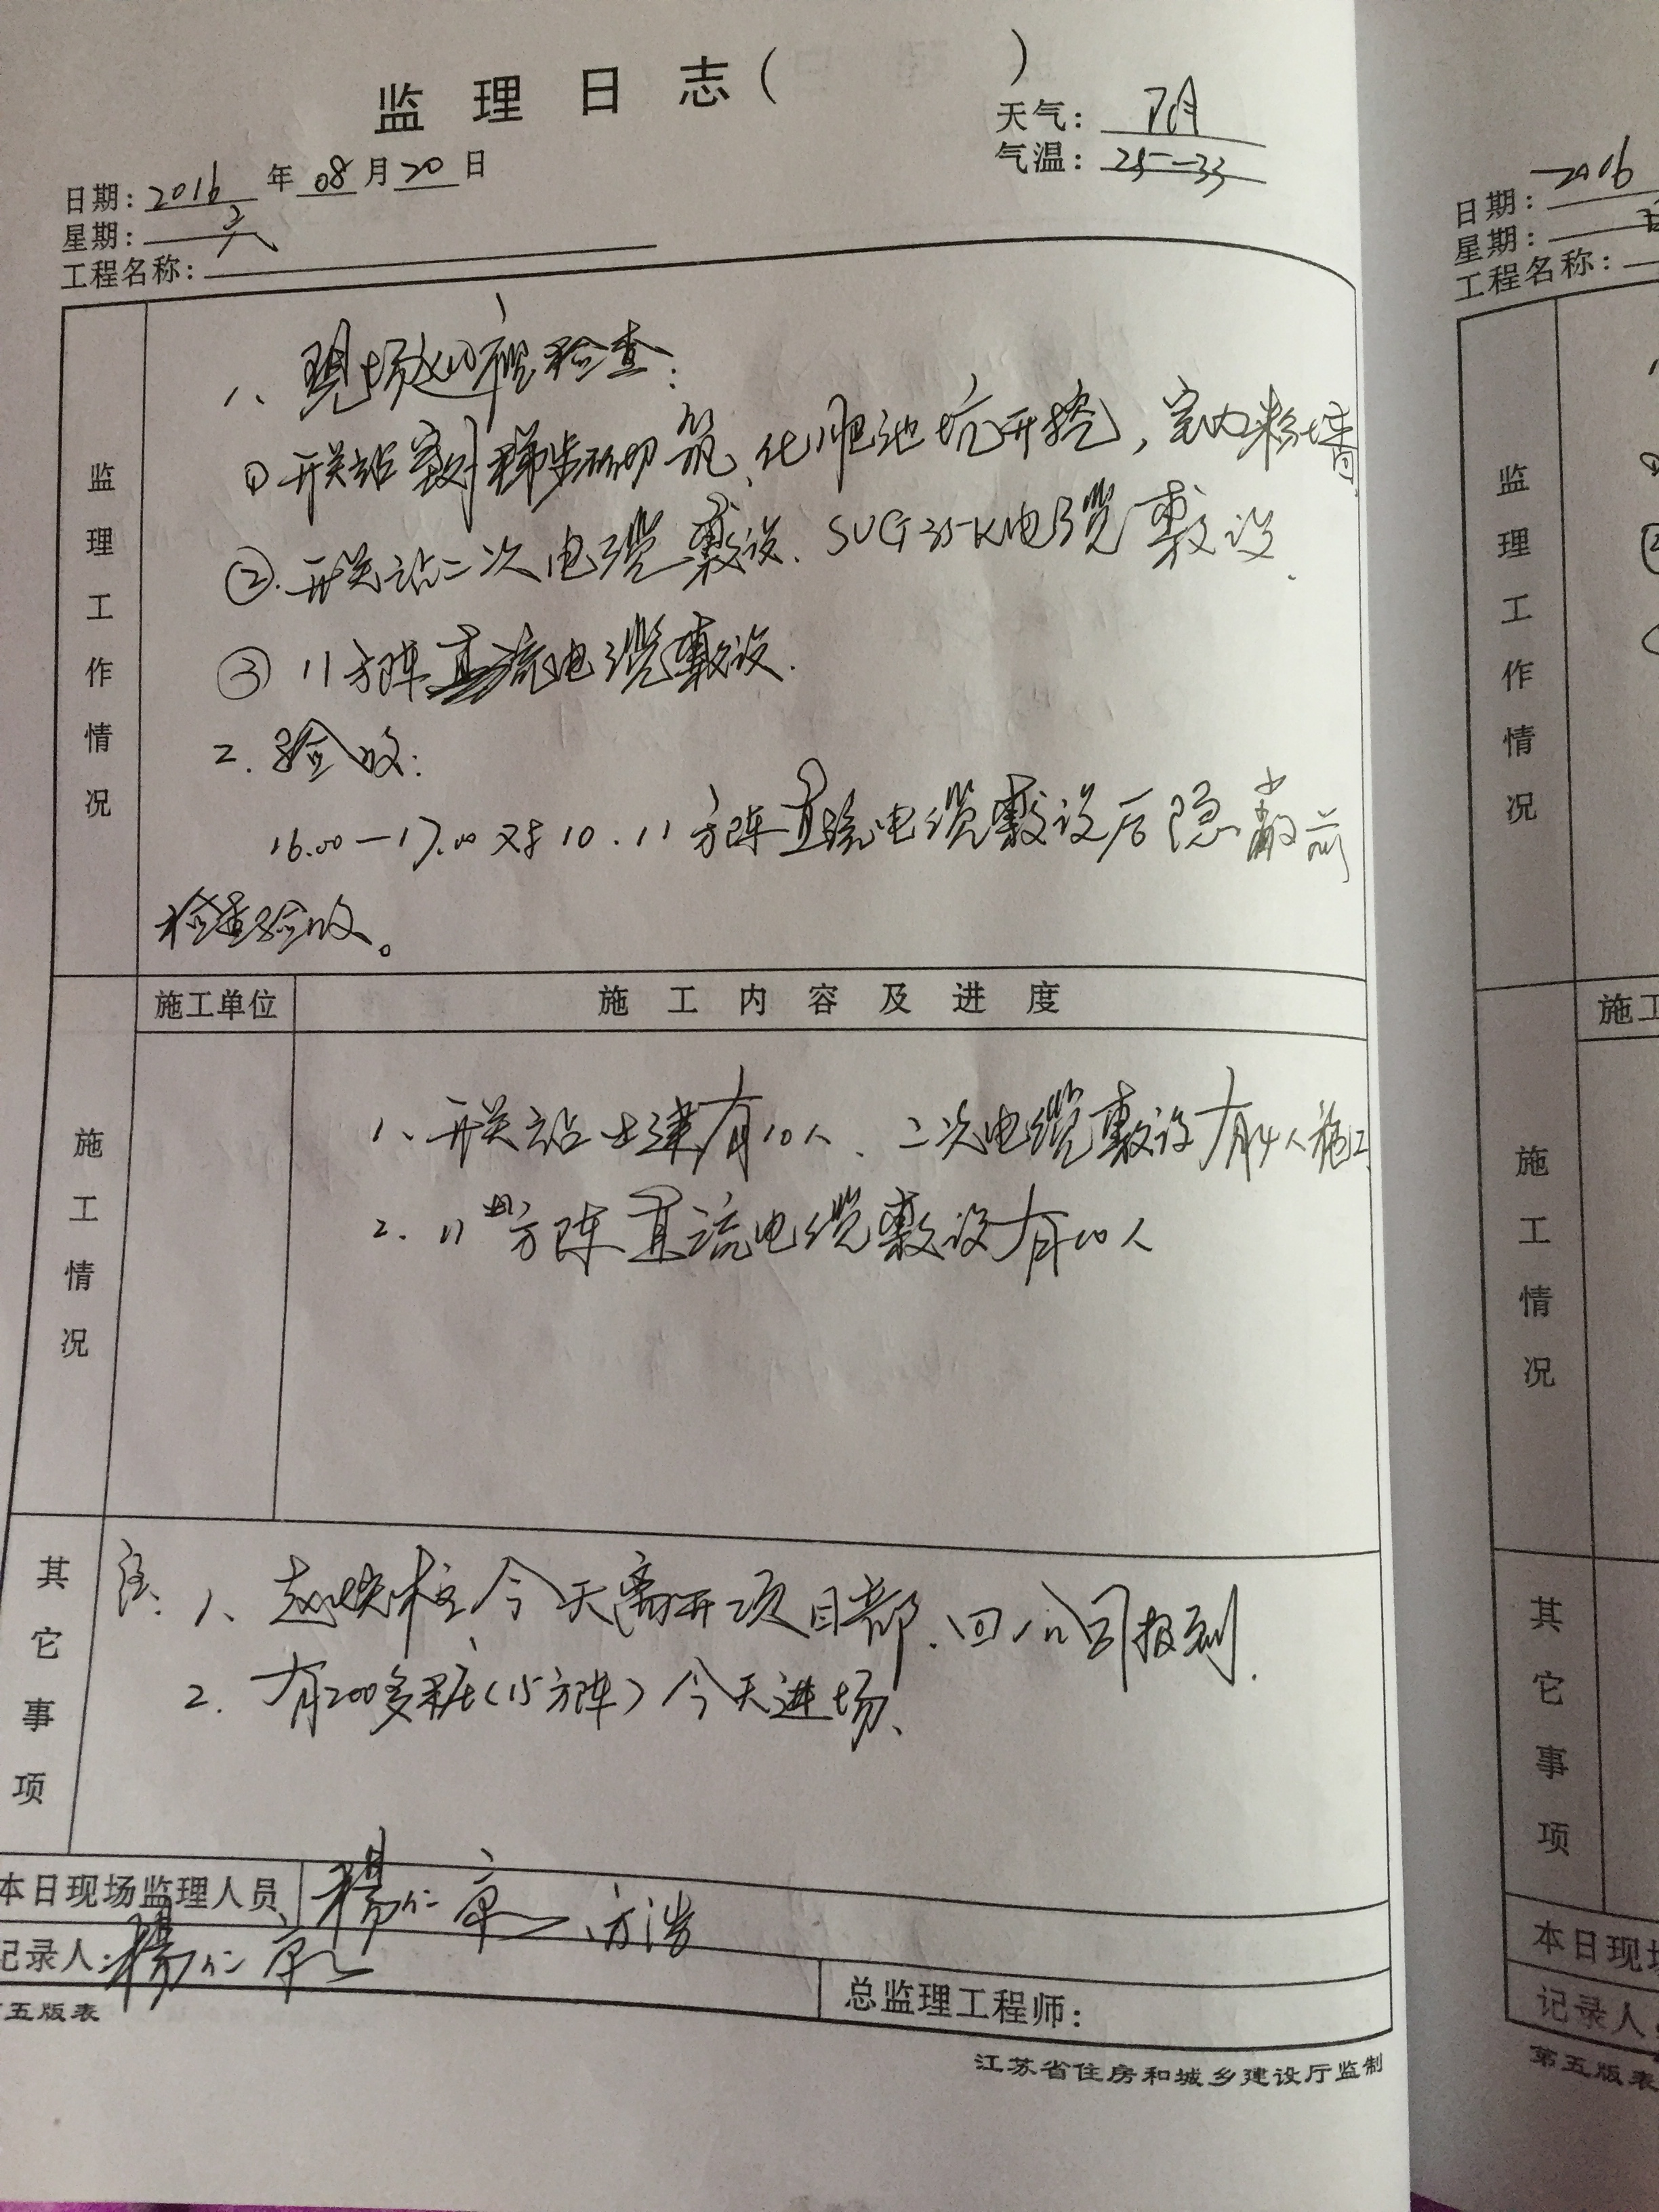 监理日志( )
天气: 阴
气温: 25-33
日期: 2016年08月20日
星期: 六
工程名称:
监理工作情况
1、现场巡视检查:
①开关站 梯步砌筑、化粪池坑开挖,室内粉墙
②.开关站二次电缆敷设、SVG35-K电缆敷设.
③ 11方阵直流电缆敷设.
2.验收:
16.00-17.00对10.11方阵直流电缆敷设后隐蔽前
检查验收。
施工单位 施工内容及进度
施工情况
1、开关站土建有10人、二次电缆敷设有4人施工
2.11#方阵直流电缆敷设有10人
其它事项
注:1、 今天离开项目部.回公司报到.
2.有200多 (15方阵)今天进场、
本日现场监理人员 杨仁 、方浩
记录人:杨仁
总监理工程师:
五版表
江苏省住房和城乡建设厅监制
日期: 2016
星期:
工程名称:
监理工作情况
施工
施工情况
其它事项
本日现场
记录人
第五版表